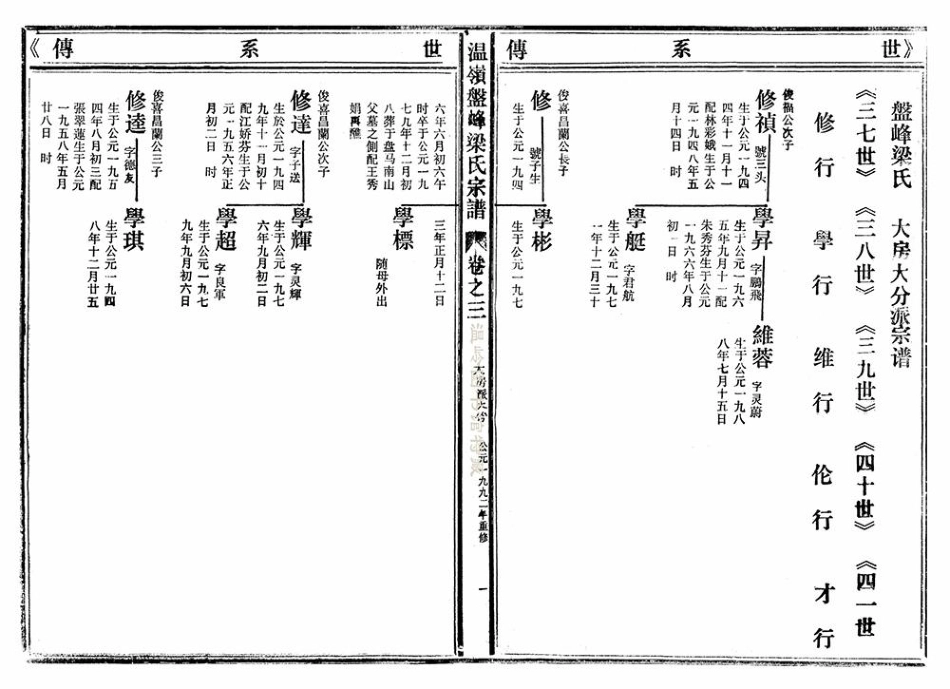 《世系傳
盤峰梁氏 大房大分派宗谱
《三七世》《三八世》《三九世》《四十世》《四一世
修行 學行 维行 伦行 才行
俊福公次子
修禎 號三头
生于公元一九四
四年十一月十一
配林彩娥生于公
元一九四八年五
月十四日 时
學昇 字鵬飛
生于公元一九六
五年九月十一配
朱秀芬生于公元
一九六六年八月
初一日 时
維蓉 字灵蔚
生于公元一九八
八年七月十五日
學艇 字君航
生于公元一九七
一年十二月三十
俊喜昌蘭公長子
修 號子生
生于公元一九四
學彬
生于公元一九七
温嶺盤峰梁氏宗譜 卷之三
公元一九九二年重修
一
世系傳》
六年六月初六午
时卒于公元一九
七九年十二月初
八葬于盘马南山
父墓之侧配王秀
娟再醮
三年正月十二日
學標
随母外出
俊喜昌蘭公次子
修達 字子送
生於公元一九四
九年十一月初十
配江娇芬生于公
元一九五六年正
月初二日 时
學輝 字灵輝
生于公元一九七
六年九月初二日
學超 字良軍
生于公元一九七
九年九月初六日
俊喜昌蘭公三子
修逵 字德友
生于公元一九五
四年八月初三配
張翠蓮生于公元
一九五八年五月
廿八日 时
學琪
生于公元一九四
八年十二月廿五